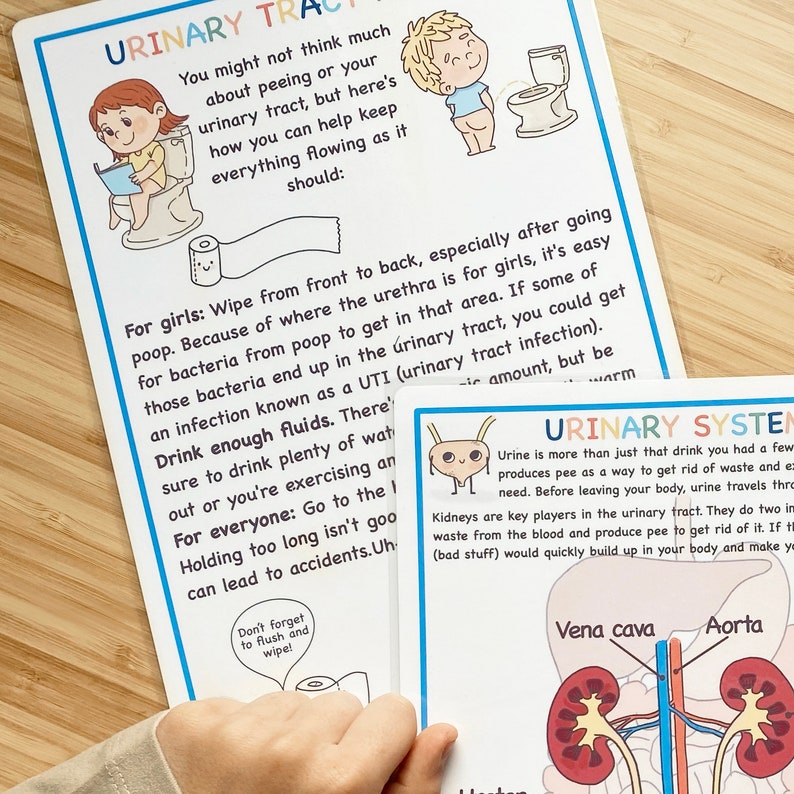 URINARY TRACT
You might not think much
about peeing or your
urinary tract, but here's
how you can help keep
everything flowing as it
should:
For girls: Wipe from front to back, especially after going
poop. Because of where the urethra is for girls, it's easy
for bacteria from poop to get in that area. If some of
those bacteria end up in the urinary tract, you could get
an infection known as a UTI (urinary tract infection).
Drink enough fluids. There's amount, but be
sure to drink plenty of warm
out or you're exercising
For everyone: Go to the
Holding too long isn't
can lead to accidents.
Don't forget
to flush and
wipe!
URINARY SYSTEM
Urine is more than just that drink you had a few
produces pee as a way to get rid of waste and
need. Before leaving your body, urine travels
Kidneys are key players in the urinary tract. They do two
waste from the blood and produce pee to get rid of it. If
(bad stuff) would quickly build up in your body and make
Vena cava
Aorta